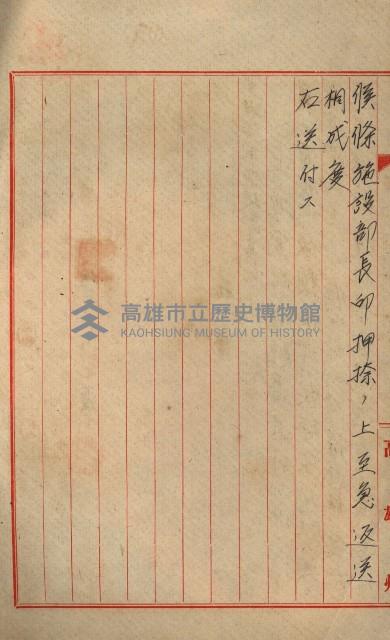 候條施設部長印押捺ノ上至急返送
相成度
右送付ス
高雄州
高雄市立歷史博物館
KAOHSIUNG MUSEUM OF HISTORY